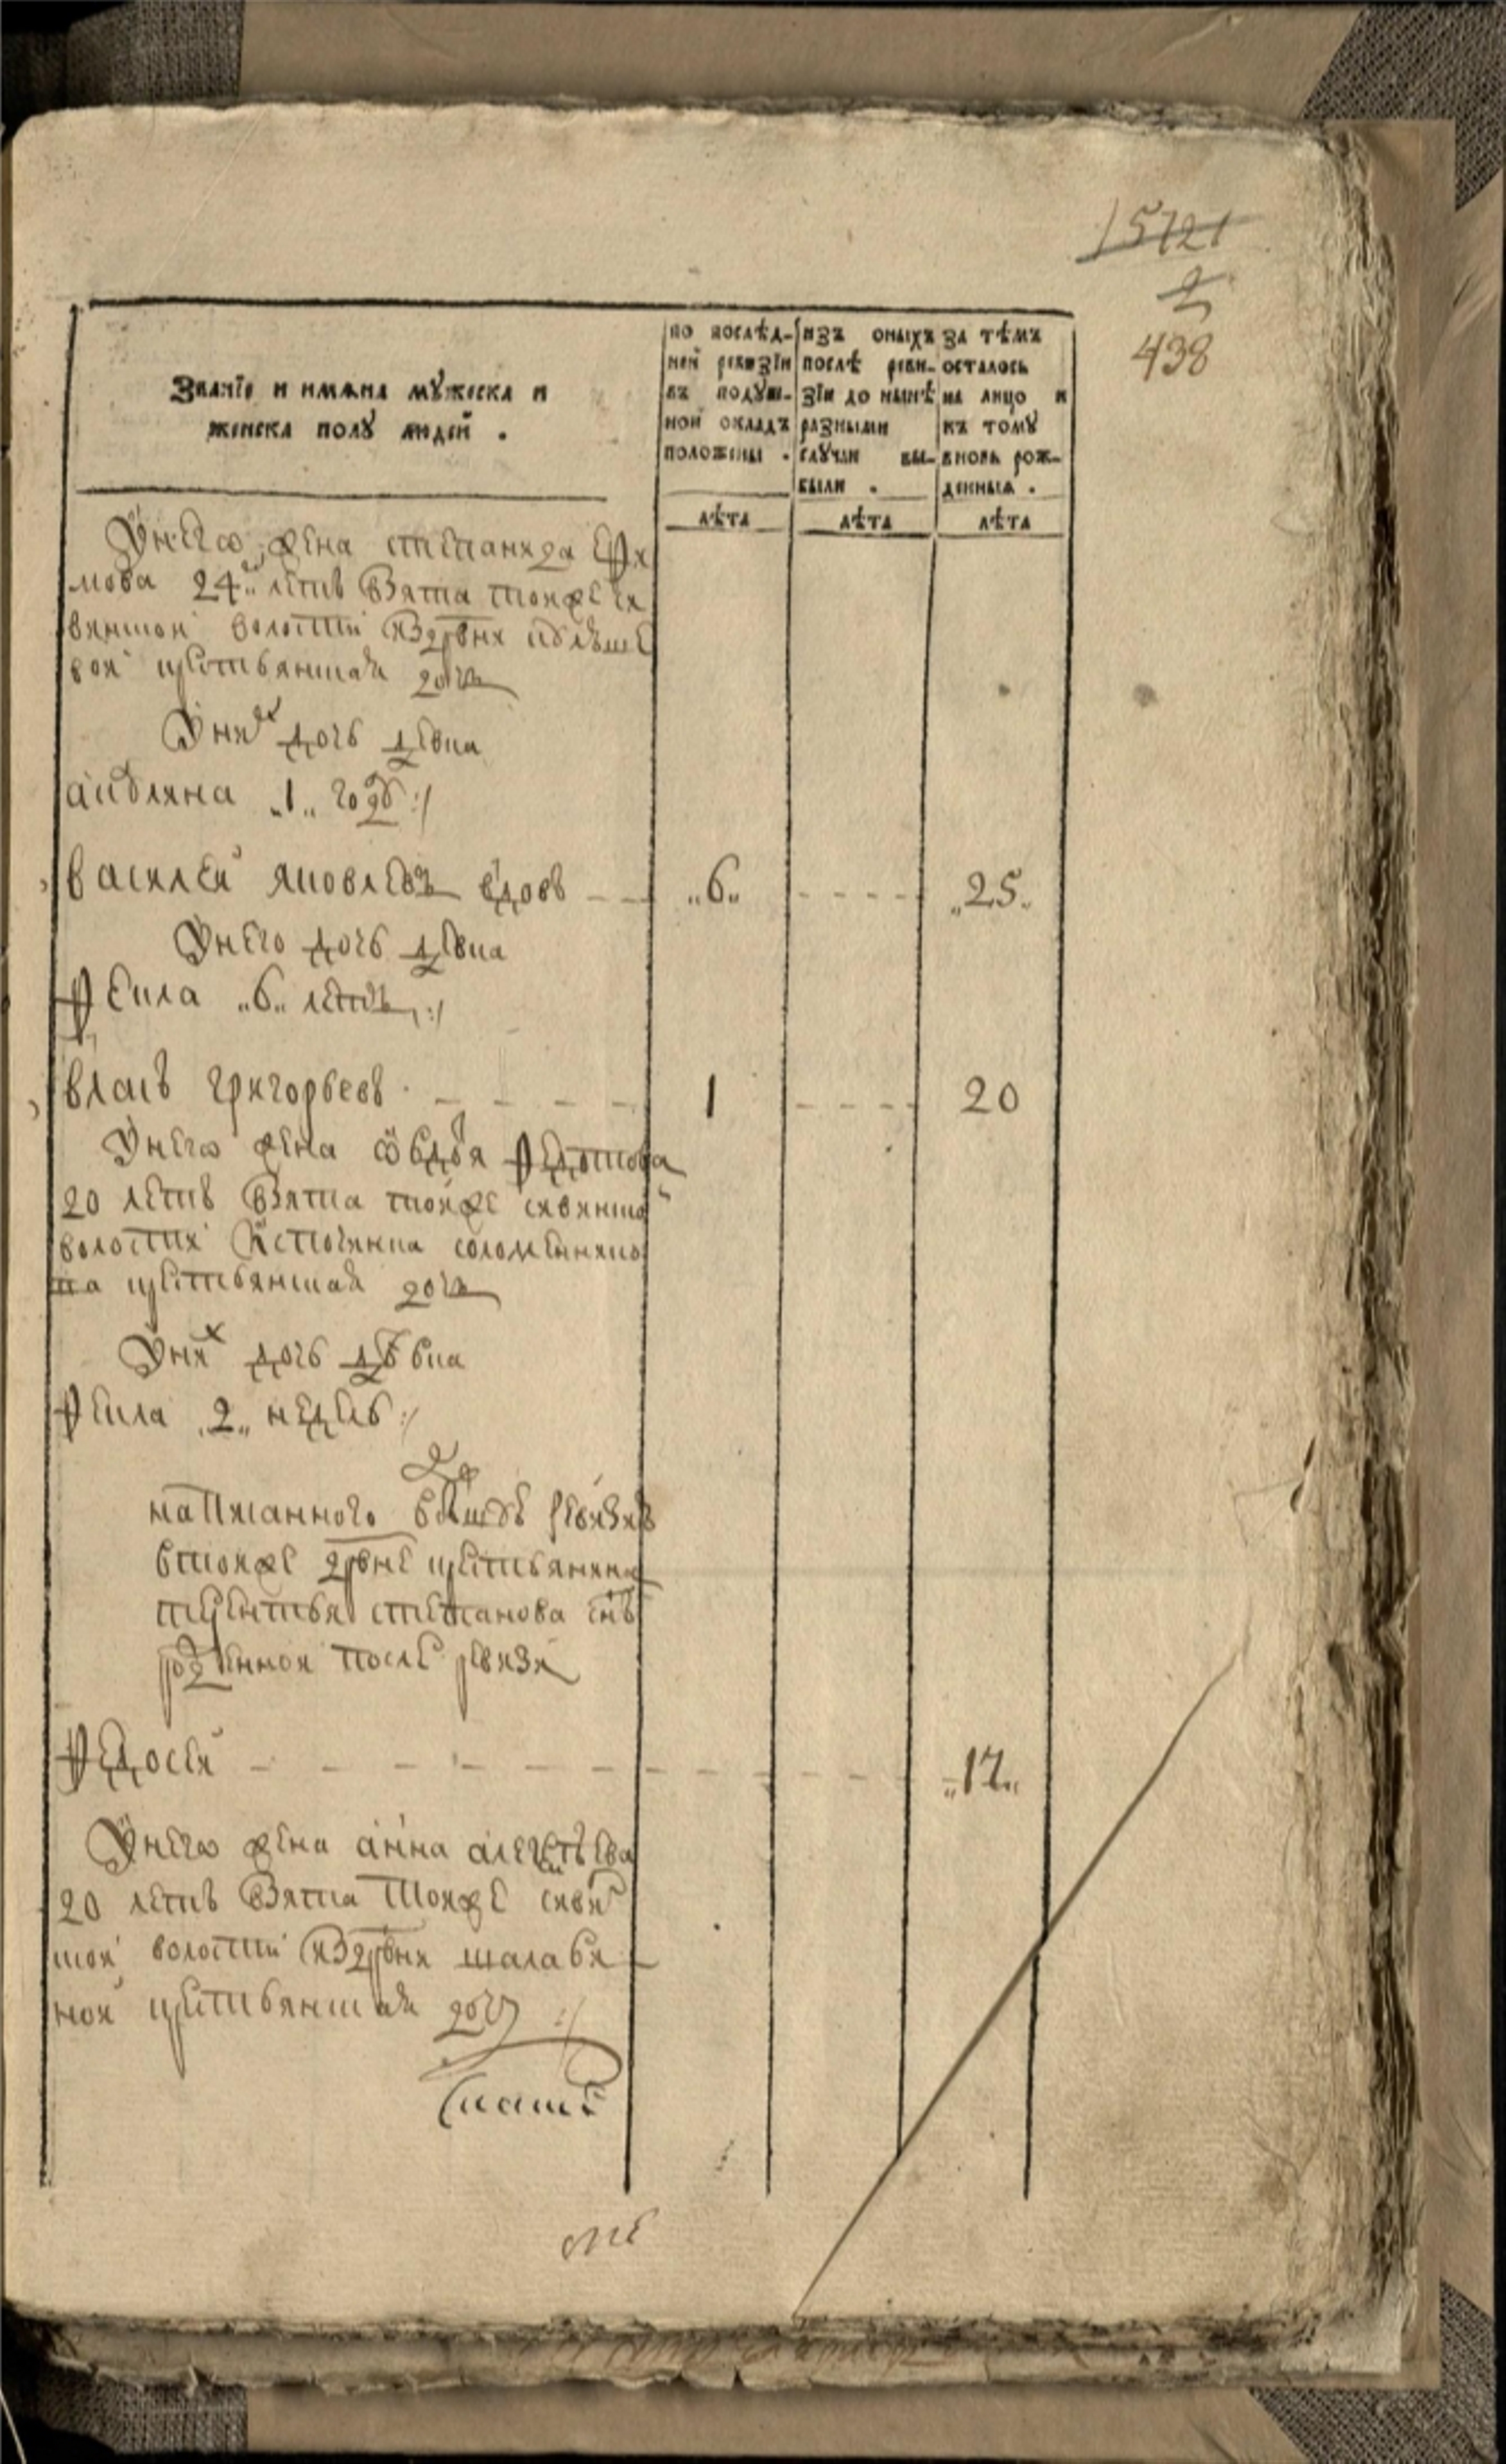 15721
2
438
Званїе и имѧна мꙋжеска и
женска полꙋ людей .
по послѣд-
ней ревизїи
въ подуш-
ной окладъ
положены .
изъ оныхъ
послѣ реви-
зїи до нынѣ
разными
случаи вы-
были .
за тѣмъ
осталось
на лицо и
къ тому
вновь рож-
денныя .
лѣта
лѣта
лѣта
Унего жена степанида ефи
мова 24 летъ взята тояже си
вinской волости издрвни
вой крстьянская дочь
Уних дочь девка
акулина 1 году
василей яковлевъ вдовъ 6 25
Унего дочь девка
Фекла 6 летъ
власъ григорьевъ 1 20
Унего жена овдотя Федотова
20 летъ взята тояже сивинской
волости ис починка соломеннико
ва крстьянская дочь
Уних дочь девка
Фекла 2 недель
написанного в той же ревизиѣ
втойже дрвне крстьянина
терентья степанова снъ
рожденной после ревизи
Федосей 17
Унего жена анна алексѣева
20 летъ взята тояже сивин
ской волости издрвни шалаби
ной крстьянская дочь